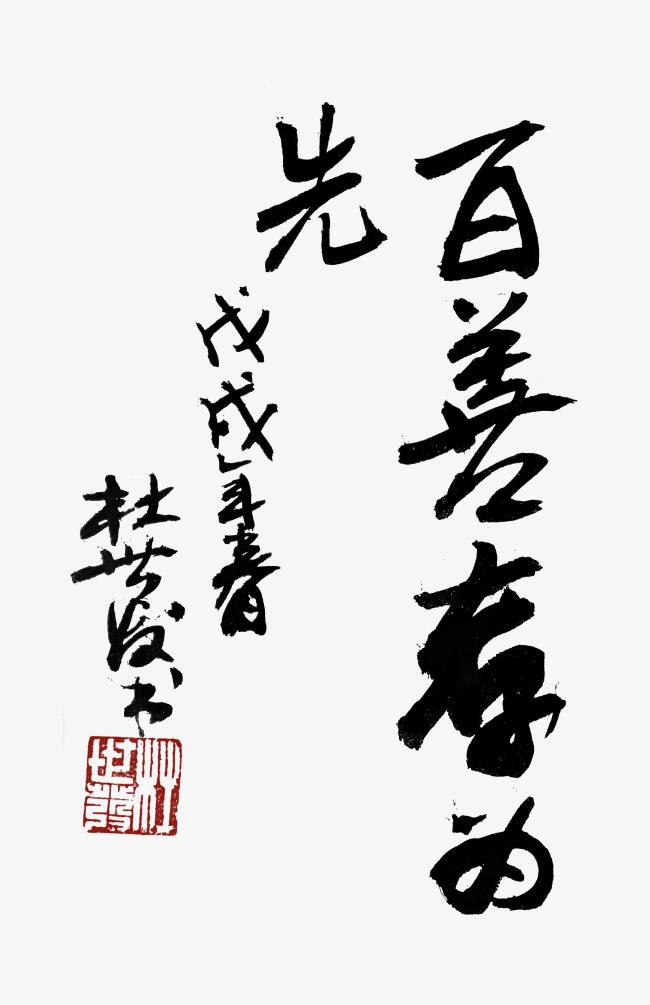 百善存为
先
戊戌年春
杜世发书
杜世發